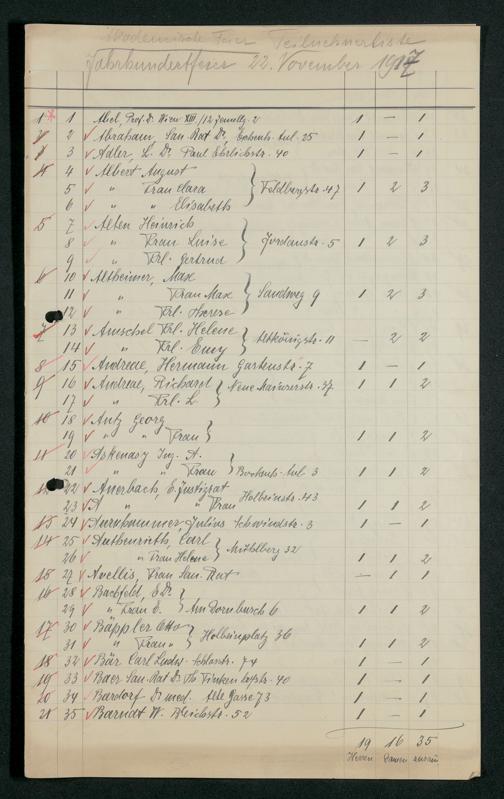 Akademische Feier Teilnehmerliste
Jahrhundertfeier 22. November 1917
1 1 Abel, Prof. Dr. Wien XIII/12 1 — 1
2 2 Abraham, San. Rat Dr., Bockenh. Anl. 25 1 — 1
3 3 Adler, L. Dr. Paul Ehrlichstr. 40 1 — 1
4 4 Albert August
5 " Frau Clara Feldbergstr. 47 1 2 3
6 " " Elisabeth
5 7 Alten Heinrich
8 " Frau Luise Jordanstr. 5 1 2 3
9 " Frl. Gertrud
6 10 Altheimer, Max
11 " Frau Max Sandweg 9 1 2 3
12 " Frl. Therese
7 13 Amschel Frl. Helene
14 " Frl. Emy Altkönigstr. 11 — 2 2
8 15 Andreae, Hermann Gartenstr. 7 1 — 1
9 16 Andreae, Richard Neue Mainzerstr. 37 1 1 2
17 " Frl. L.
10 18 Antz Georg
19 " " Frau 1 1 2
11 20 Askenasy Ing. A.
21 " " Frau Bockenh. Anl. 3 1 1 2
12 22 Auerbach E. Justizrat
23 " " Frau Holbeinstr. 43 1 1 2
13 24 Aurnhammer, Julius Schwindstr. 3 1 — 1
14 25 Authenrieth, Carl
26 " Frau Helene Mühlberg 32 1 1 2
15 27 Avellis, Frau San. Rat — 1 1
16 28 Bachfeld, E. Dr.
29 " Frau E. Am Dornbusch 6 1 1 2
17 30 Bäppler Otto
31 " Frau " Holbeinplatz 36 1 1 2
18 32 Bär Carl Ludw. Schlossstr. 74 1 — 1
19 33 Baer San. Rat Dr. Th. 40 1 — 1
20 34 Bardorf Dr. med. Alte Gasse 73 1 — 1
21 35 Barndt W. Bleichstr. 52 1 — 1
19 16 35
Herren Damen zusam.